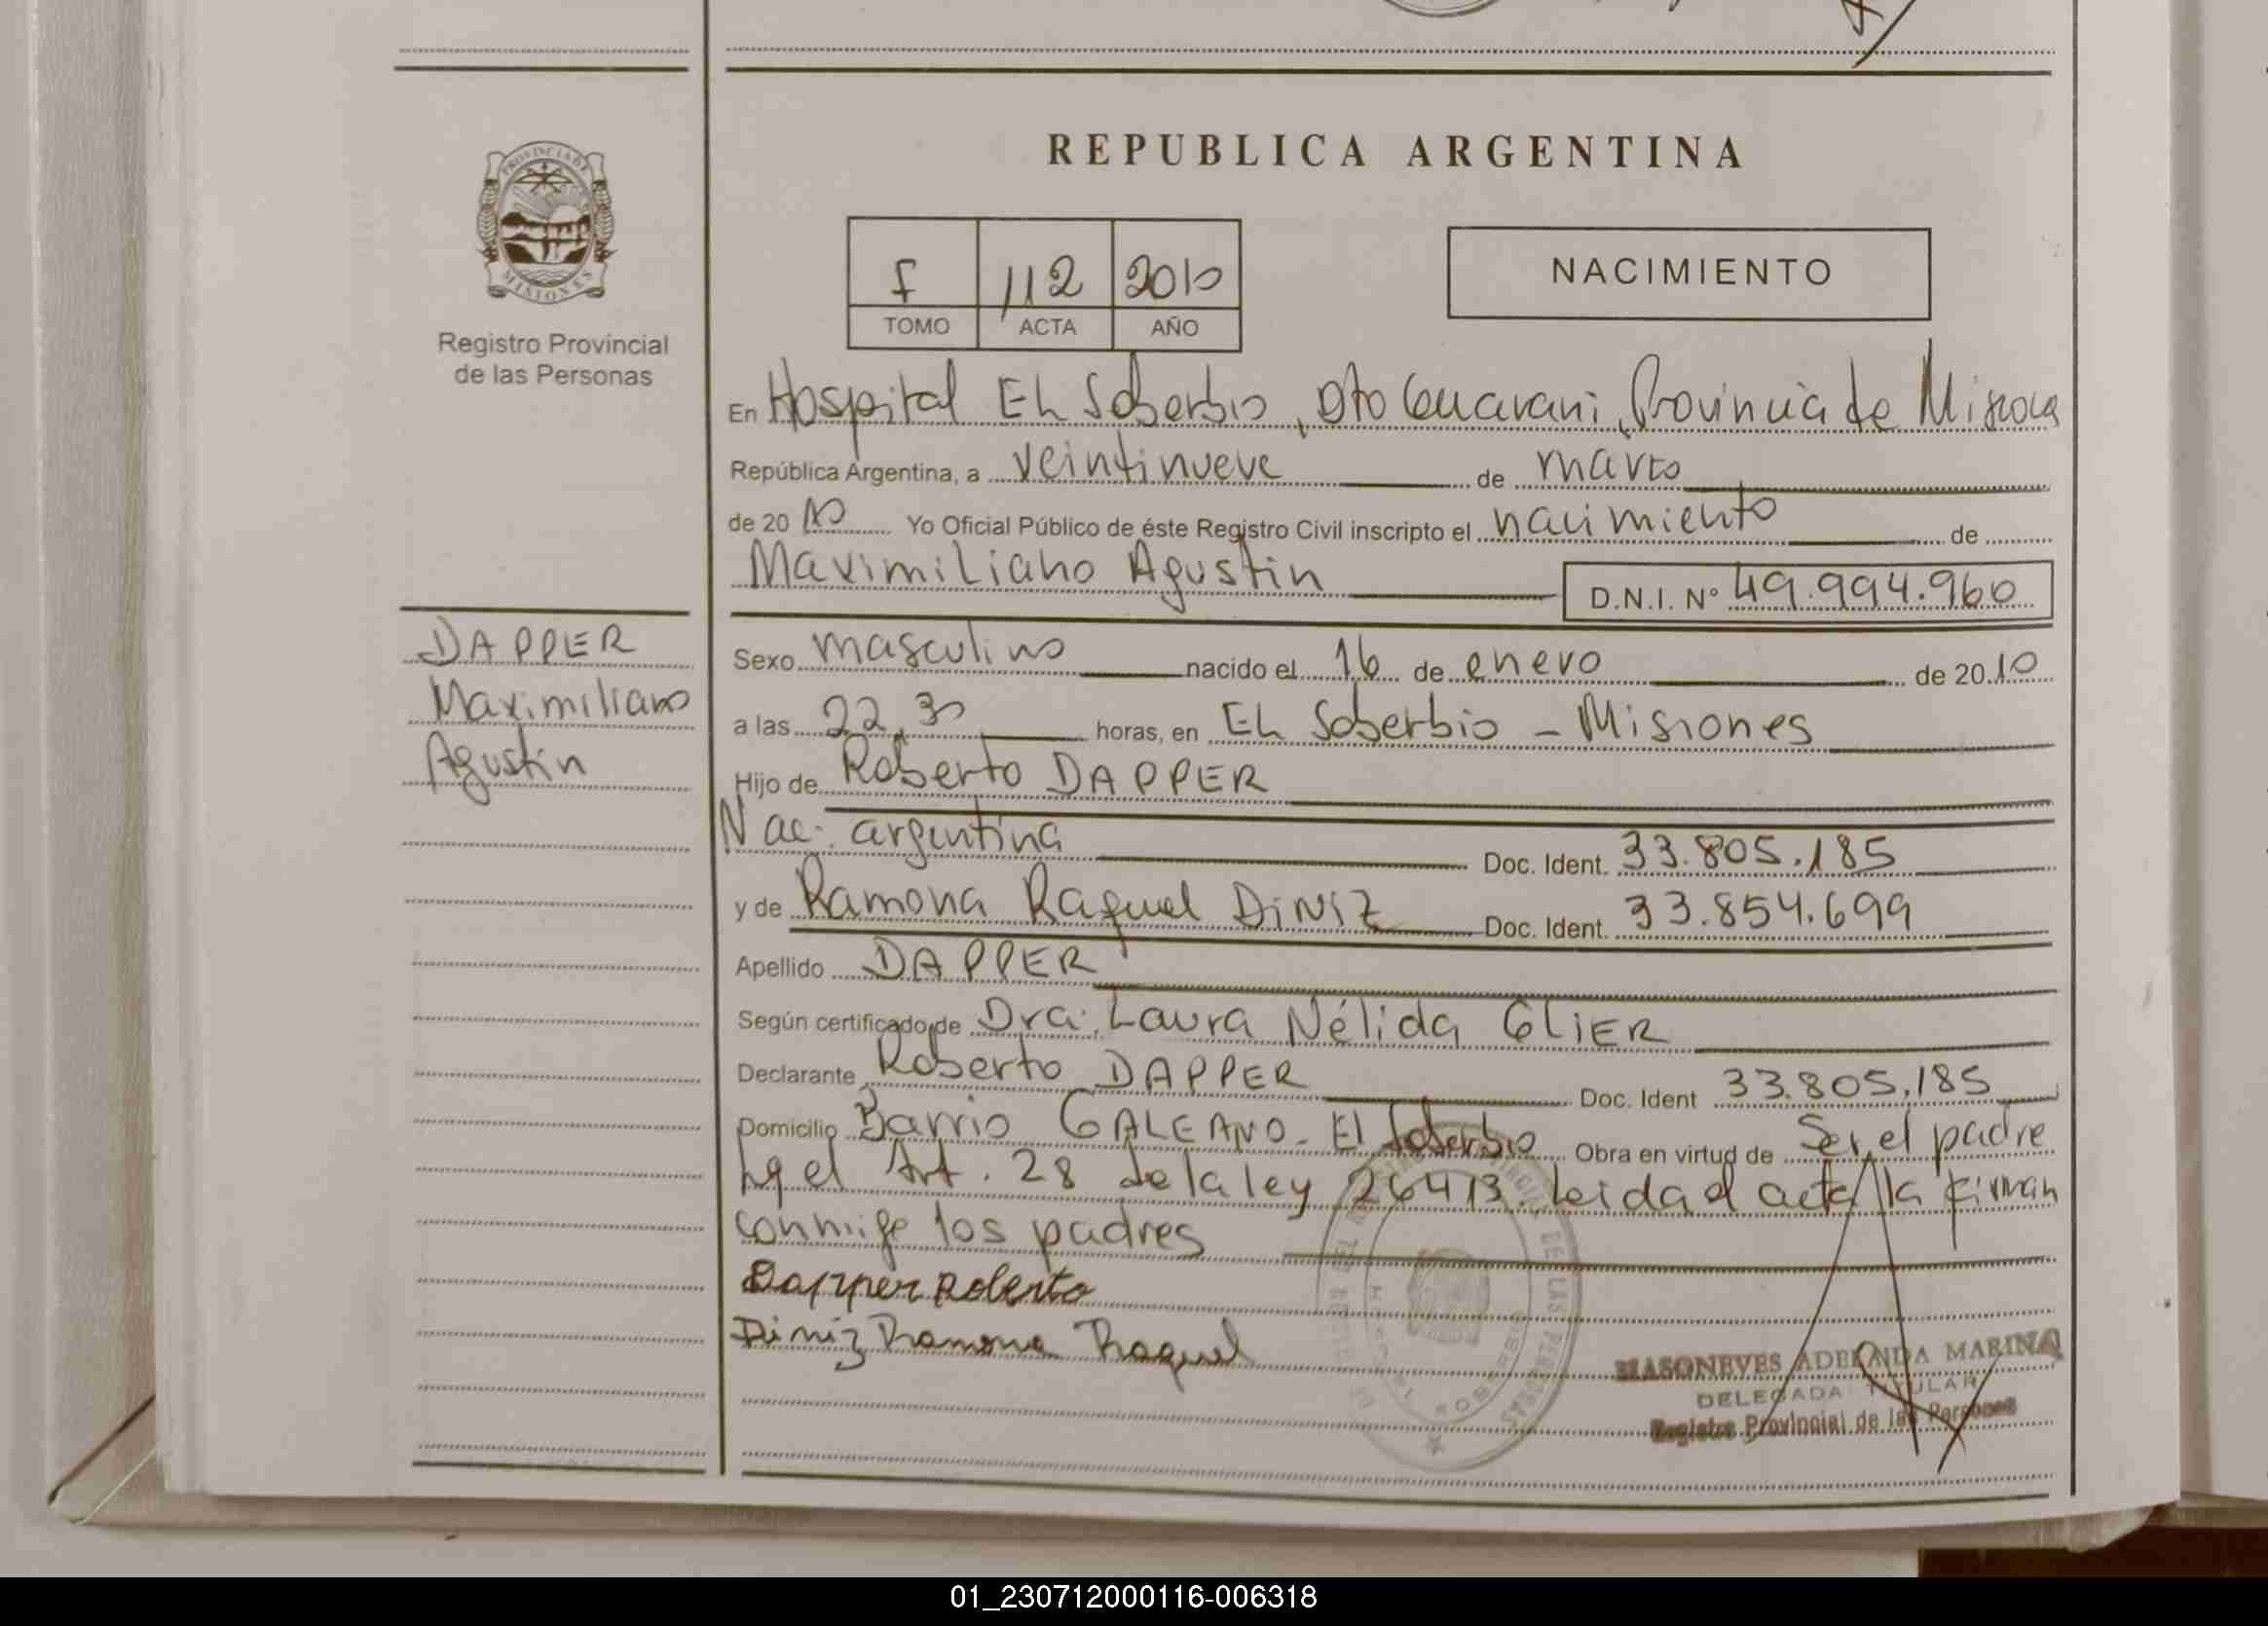 REPUBLICA ARGENTINA
PROVINCIA DE
MISIONES
Registro Provincial
de las Personas
I 112 2010
TOMO ACTA AÑO
NACIMIENTO
En Hospital EL Soberbio, Dto Guarani, Provincia de Misiones
República Argentina, a veintinueve de marzo
de 2010 Yo Oficial Público de éste Registro Civil inscripto el nacimiento de
Maximiliano Agustin D.N.I. Nº 49.994.960
DAPPER
Maximiliano
Agustin
Sexo masculino nacido el 16 de enero de 2010
a las 22,30 horas, en EL Soberbio - Misiones
Hijo de Roberto DAPPER
Nac. argentina Doc. Ident. 33.805.185
y de Ramona Raquel DiNiZ Doc. Ident. 33.854.699
Apellido DAPPER
Según certificado de Dra. Laura Nélida GLiER
Declarante Roberto DAPPER Doc. Ident 33.805.185
Domicilio Barrio GALEANO - El Soberbio Obra en virtud de Ser el padre
el Art. 28 de la ley 26413 Leida el acta la firman
conmigo los padres
Dapper Roberto
Diniz Ramona Raquel
MASONEVES ADELAIDA MARINA
DELEGADA TITULAR
Registro Provincial de las Personas
01_230712000116-006318